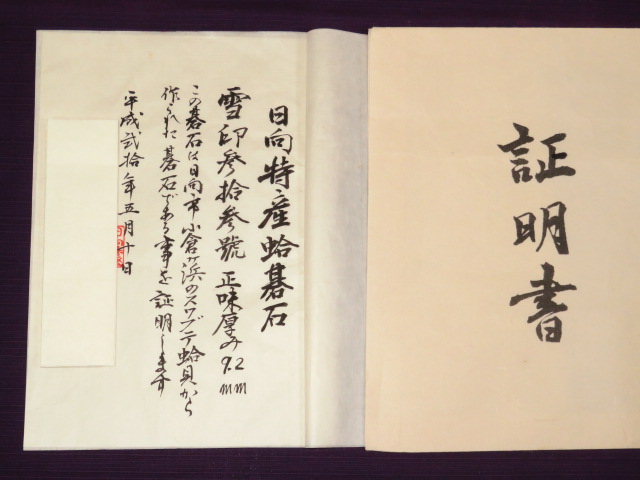 証明書
日向特産蛤碁石
雪印参拾参號 正味厚み9.2mm
この碁石は日向市小倉ヶ浜のスワブテ蛤貝から
作られた碁石である事を証明します
平成弐拾年五月十日